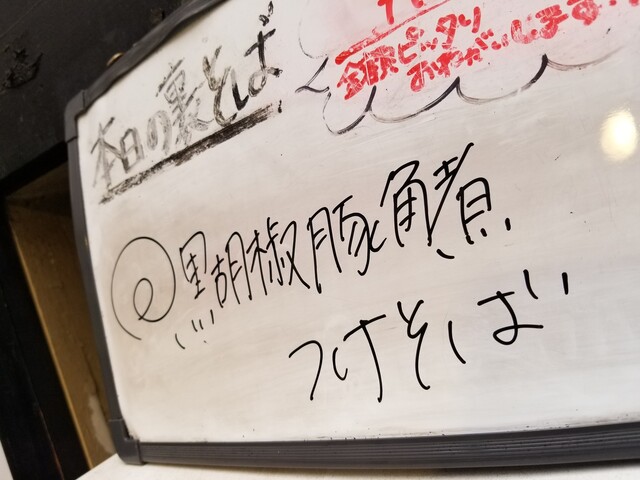 金額ピッタリ
おねがいします
本日の裏そば
黒胡椒豚角煮
つけそば